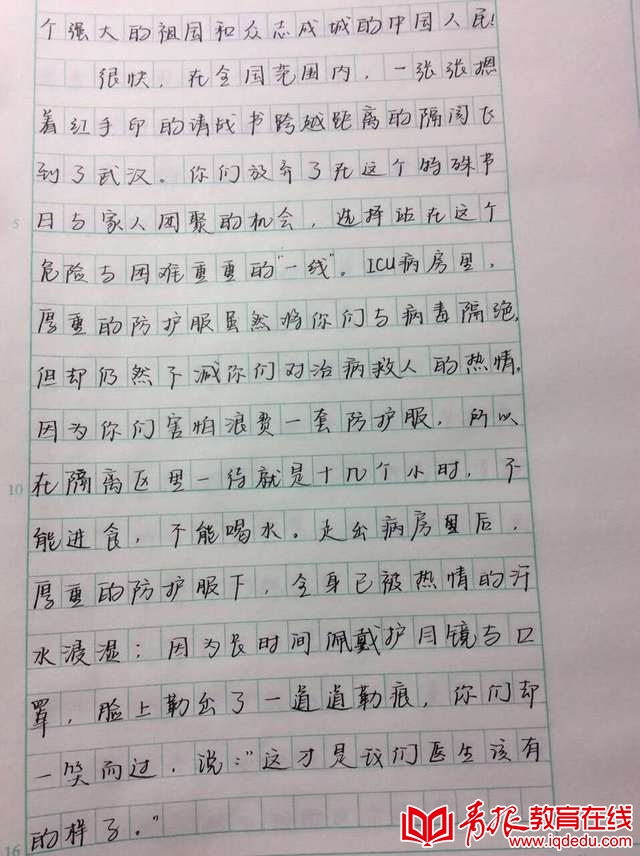 个强大的祖国和众志成城的中国人民！
很快，在全国范围内，一张张摁
着红手印的请战书跨越距离的隔阂飞
到了武汉。你们放弃了在这个特殊节
5
日与家人团聚的机会，选择站在这个
危险与困难重重的“一线”。ICU病房里，
厚重的防护服虽然将你们与病毒隔绝，
但却仍然不减你们对治病救人的热情。
因为你们害怕浪费一套防护服，所以
10
在隔离区里一待就是十几个小时，不
能进食，不能喝水。走出病房里后，
厚重的防护服下，全身已被热情的汗
水浸湿；因为长时间佩戴护目镜与口
罩，脸上勒出了一道道勒痕，你们却
一笑而过，说：“这才是我们医生该有
16
的样子。”
青报教育在线
www.iqdedu.com